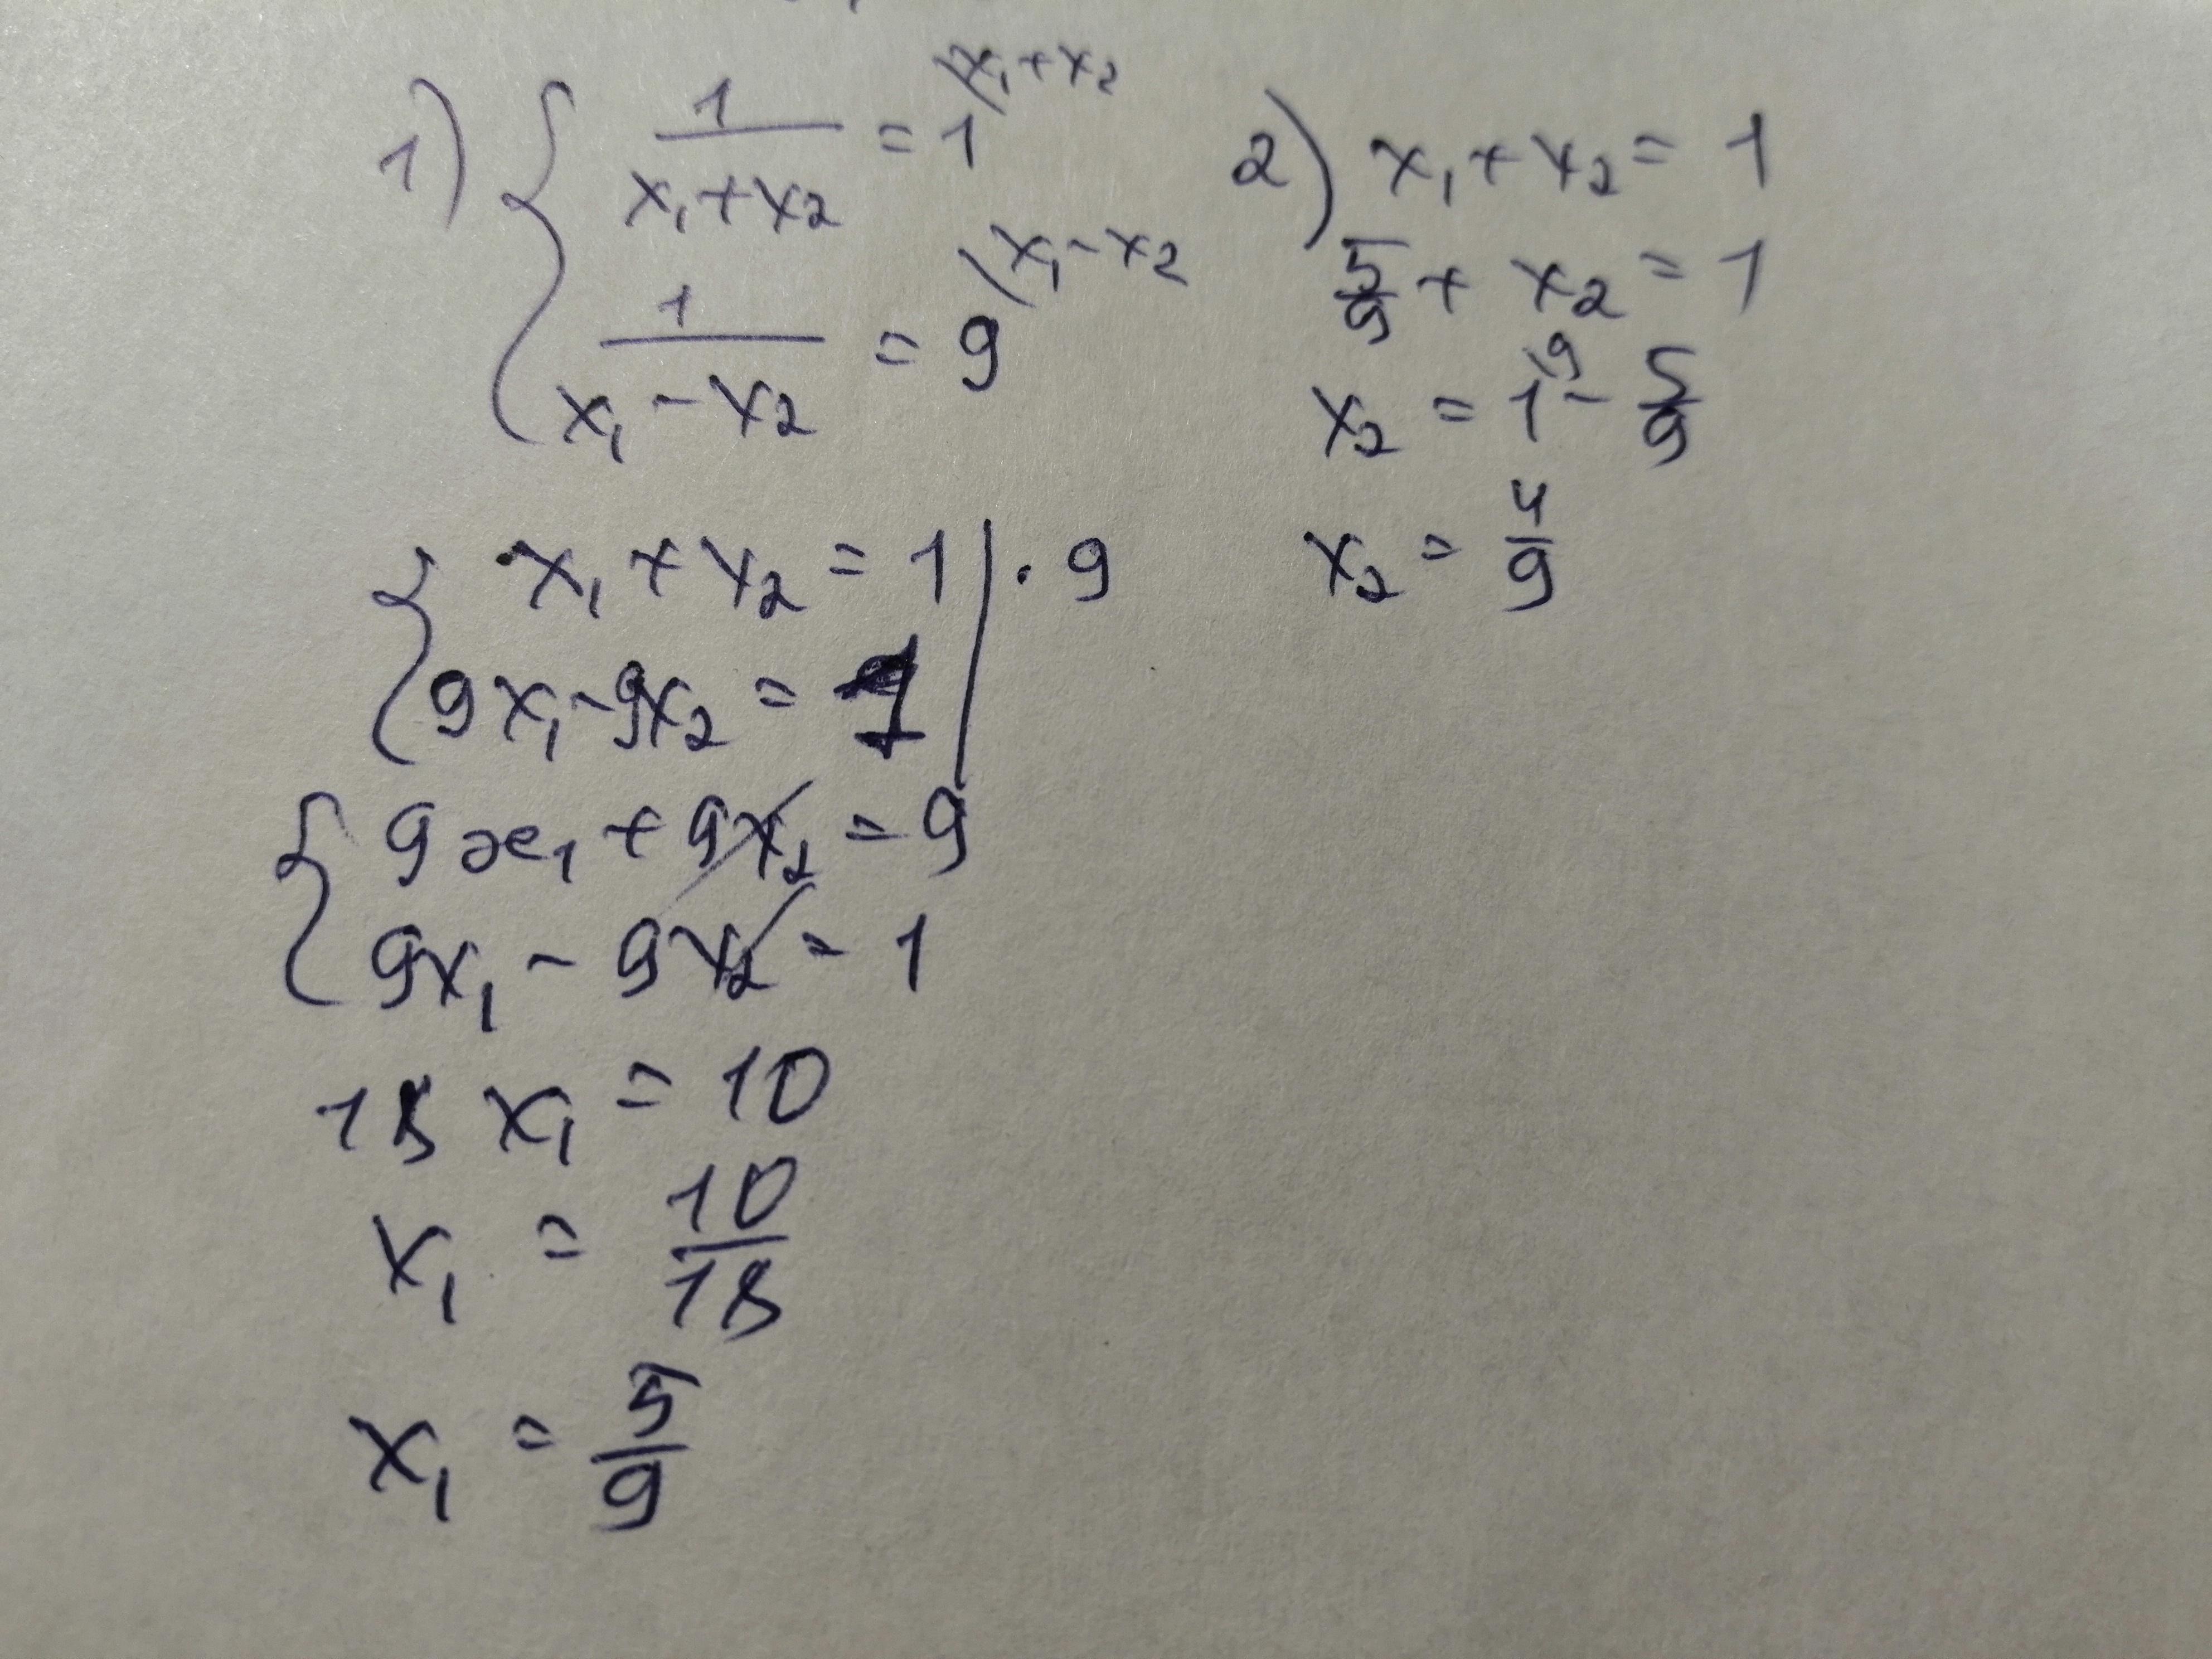 1) { 1/(x₁+x₂) = 1 \x₁+x₂
1/(x₁-x₂) = 9 \x₁-x₂
{ x₁+x₂ = 1 | · 9
9x₁-9x₂ = 1 |
{ 9x₁+9x₂ = 9
9x₁-9x₂ = 1
18 x₁ = 10
x₁ = 10/18
x₁ = 5/9
2) x₁+x₂ = 1
5/9 + x₂ = 1
x₂ = 1\9 - 5/9
x₂ = 4/9